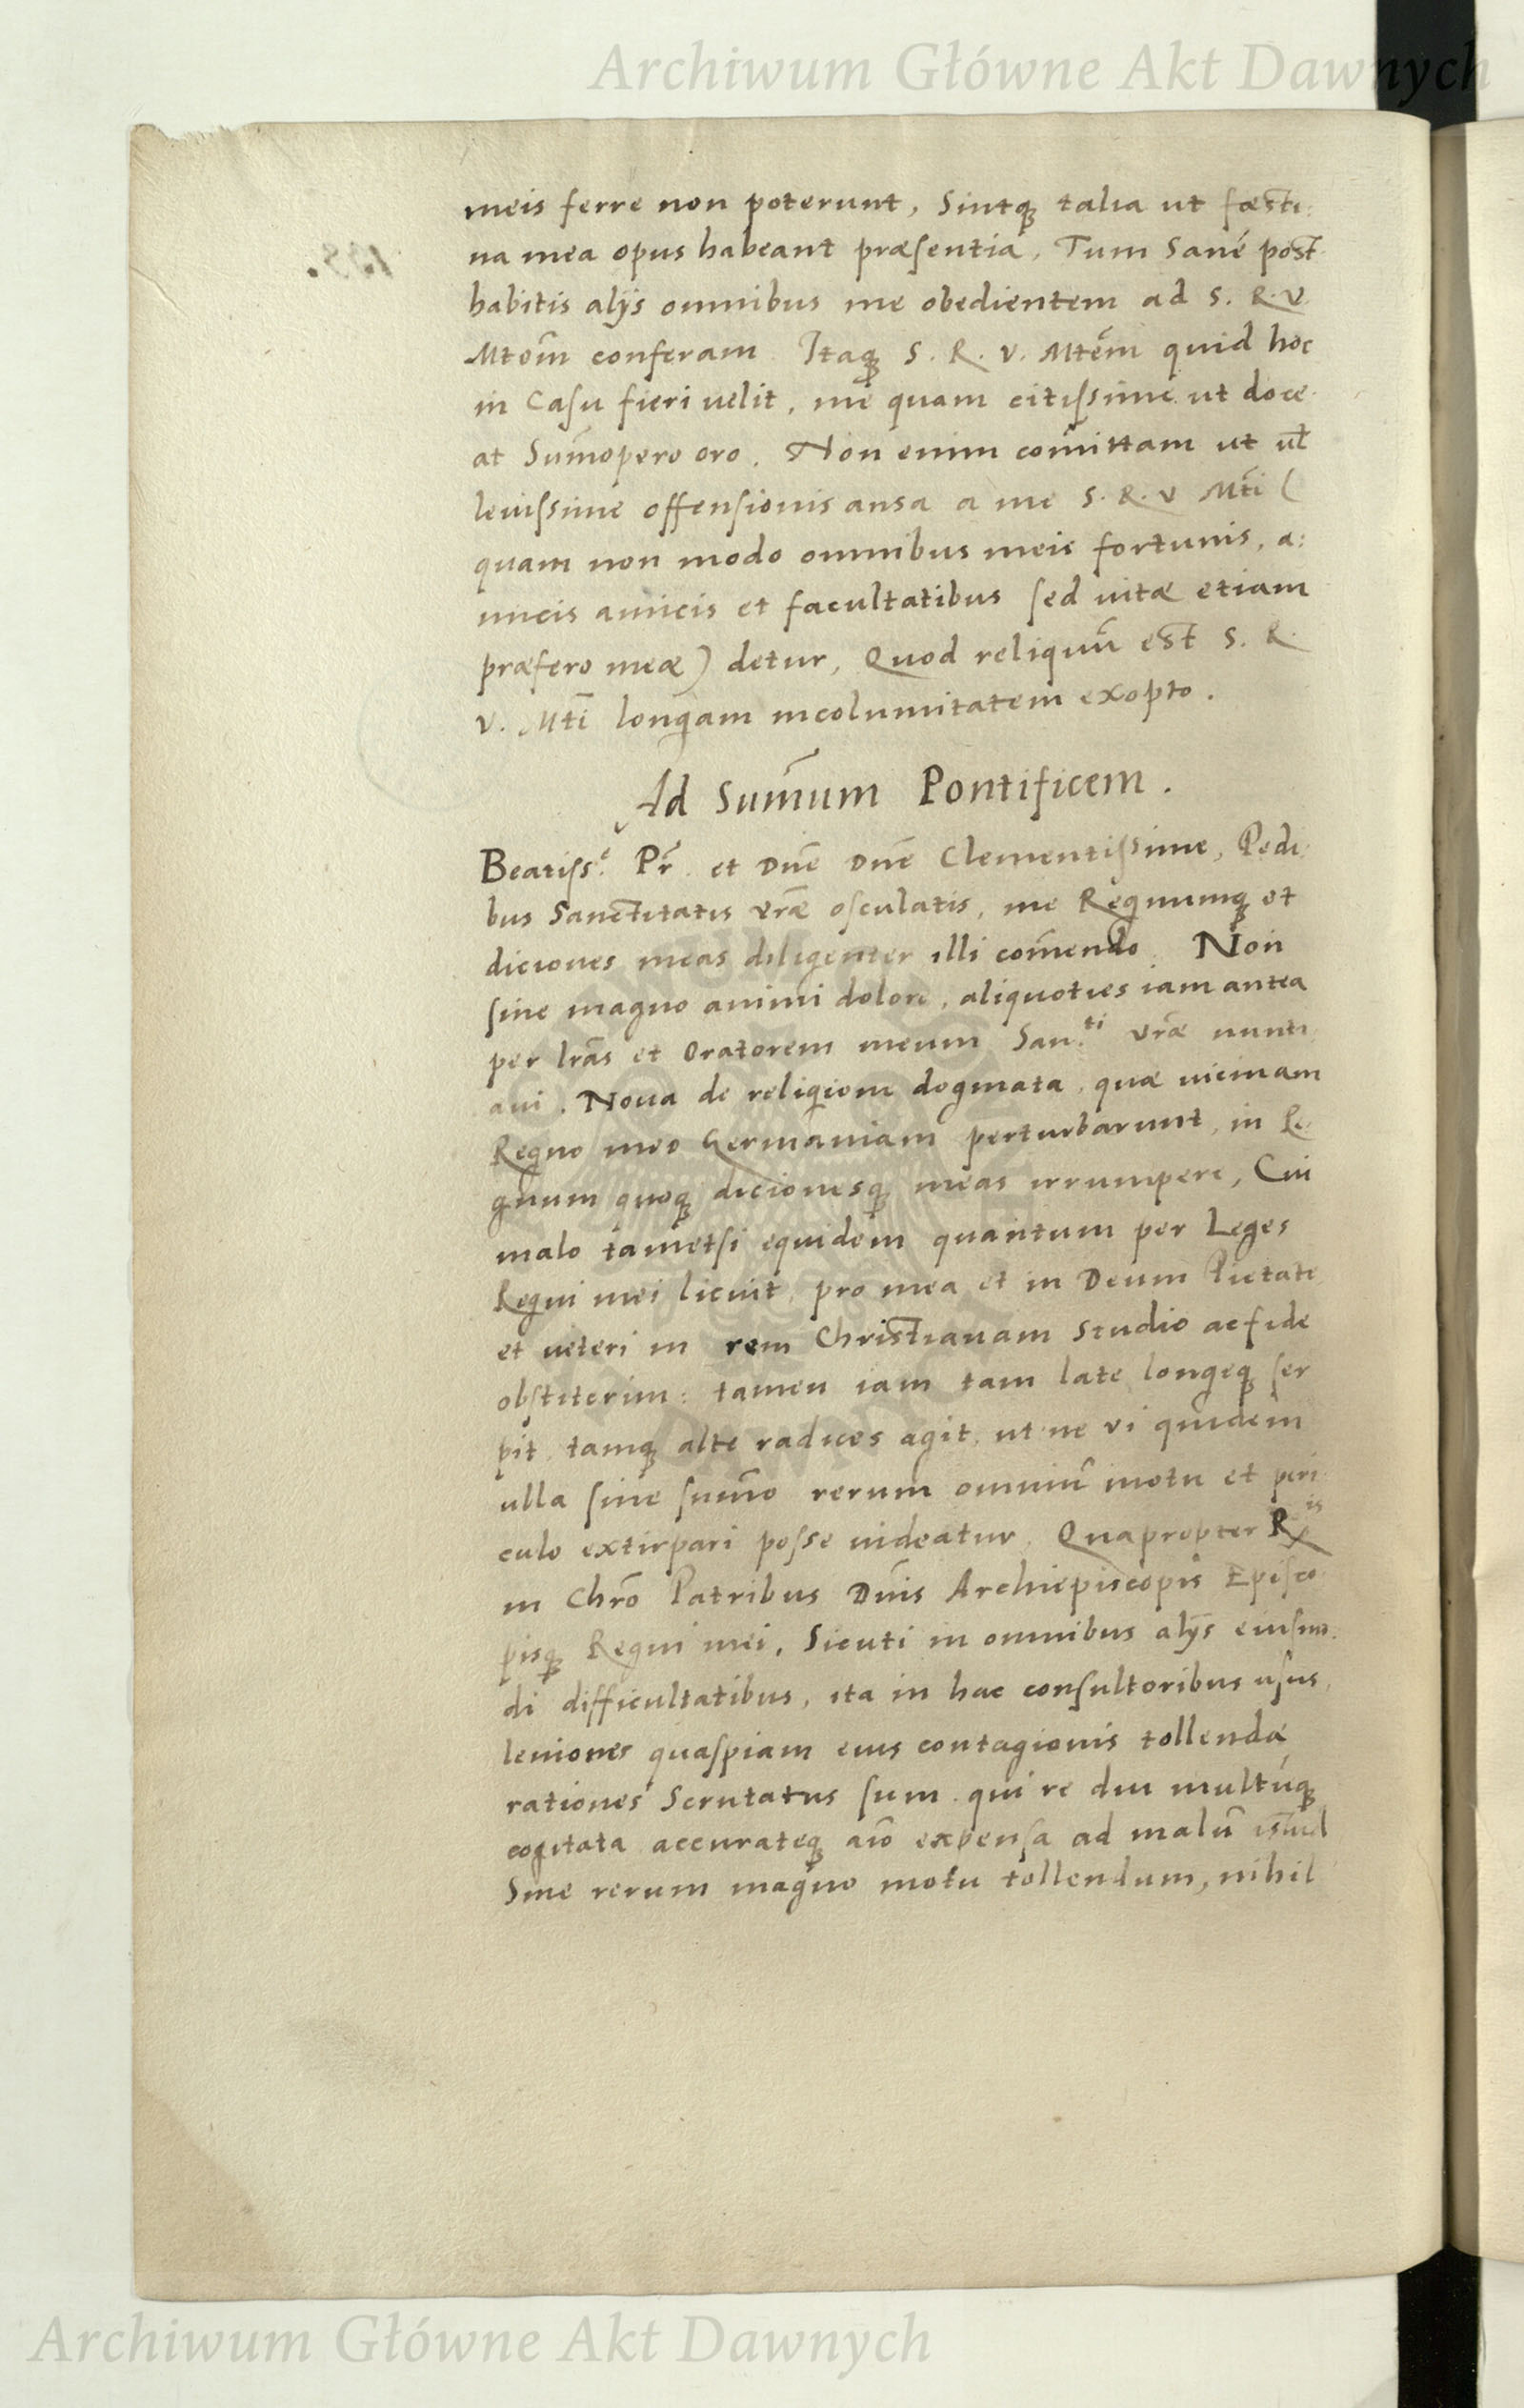 Archiwum Główne Akt Dawnych
meis ferre non poterunt, Sintq́ue talia ut fœsti:
na mea opus habeant præsentia, Tum Sané post
habitis alijs omnibus me obedientem ad S. R. V.
Mtem̃ conferam. Itaq́ue S. R. V. Mtem̃ quid hoc
in Casu fieri velit, me quam citissime ut doce
at Sum̃opero oro. Non enim com̃ittam ut ul̃
leuissime offensionis ansa a me S. R. V Mti (
quam non modo omnibus meis fortunis, a:
micis amicis et facultatibus sed vitæ etiam
præfero meæ) detur, Quod reliquũ est S. R.
V. Mti longam incolumitatem exopto.
Ad Sum̃um Pontificem.
Beatiss.e Pr̃. et Dñe Dñe Clementissime, Pedi
bus Sanctitatis vr̃æ osculatis, me Regnumq́ue et
diciones meas diligenter illi com̃endo. Non
sine magno animi dolore, aliquoties iam antea
per lr̃as et Oratorem meum San.ti vr̃æ nunti
aui. Noua de religione dogmata, quæ vicinam
Regno meo Germaniam perturbarunt, in Re
gnum quoq́ue dicionesq́ue meas irrumpere, Cui
malo tametsi equidem quantum per Leges
Regni mei licuit, pro mea et in Deum Pietate
et veteri in rem Christianam studio ac fide
obstiterim: tamen iam tam late longeq́ue ser
pit, tamq́ue alte radices agit, ut ne vi quidem
ulla sine sum̃o rerum omniũ motu et peri
culo extirpari posse videatur, Quapropter Rx̃is
in Chr̃o Patribus Dñis Archiepiscopis Episco
pisq́ue Regni mei, Sicuti in omnibus alijs eiusmo
di difficultatibus, ita in hac consultoribus usus,
leniones quaspiam eius contagionis tollendæ
rationes Scrutatus sum. qui re diu multũq́ue
cogitata accurateq́ue aĩo expensa ad malũ istud
Sine rerum magno motu tollendum, nihil
Archiwum Główne Akt Dawnych